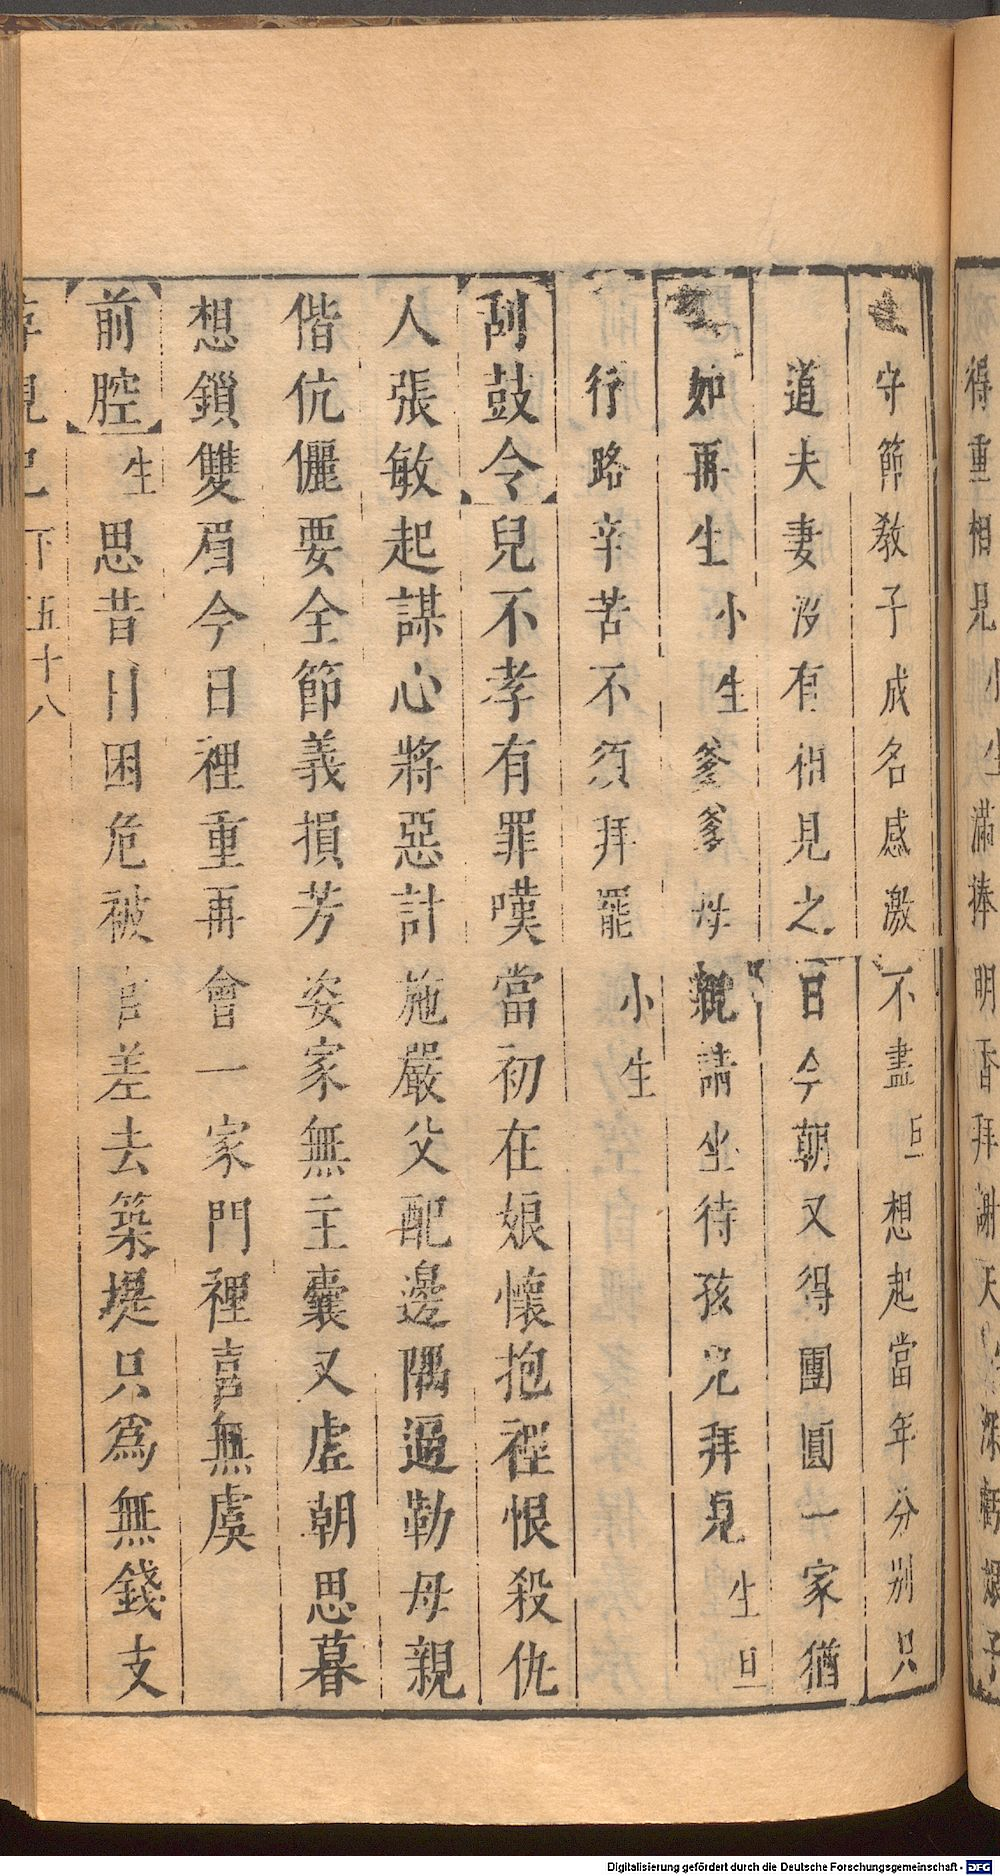 得重相見 小生 滿捧明香拜謝天 深虧娘子
守節教子成名感激不盡 旦 想起當年分別只
道夫妻沒有相見之日今朝又得團圓一家猶
如再生 小生 爹爹母親請坐待孩兒拜見 生旦
行路辛苦不須拜罷 小生
刮鼓令 兒不孝有罪嘆當初在娘懷抱裡恨殺仇
人張敏起謀心將惡計施嚴父配邊隅逼勒母親
偕伉儷要全節義損芳姿家無主囊又虛朝思暮
想鎖雙眉今日裡重再會一家門裡喜無虞
前腔 生 思昔日困危被官差去築堤只爲無錢支
尋親記 下 五十八
Digitalisierung gefördert durch die Deutsche Forschungsgemeinschaft - DFG